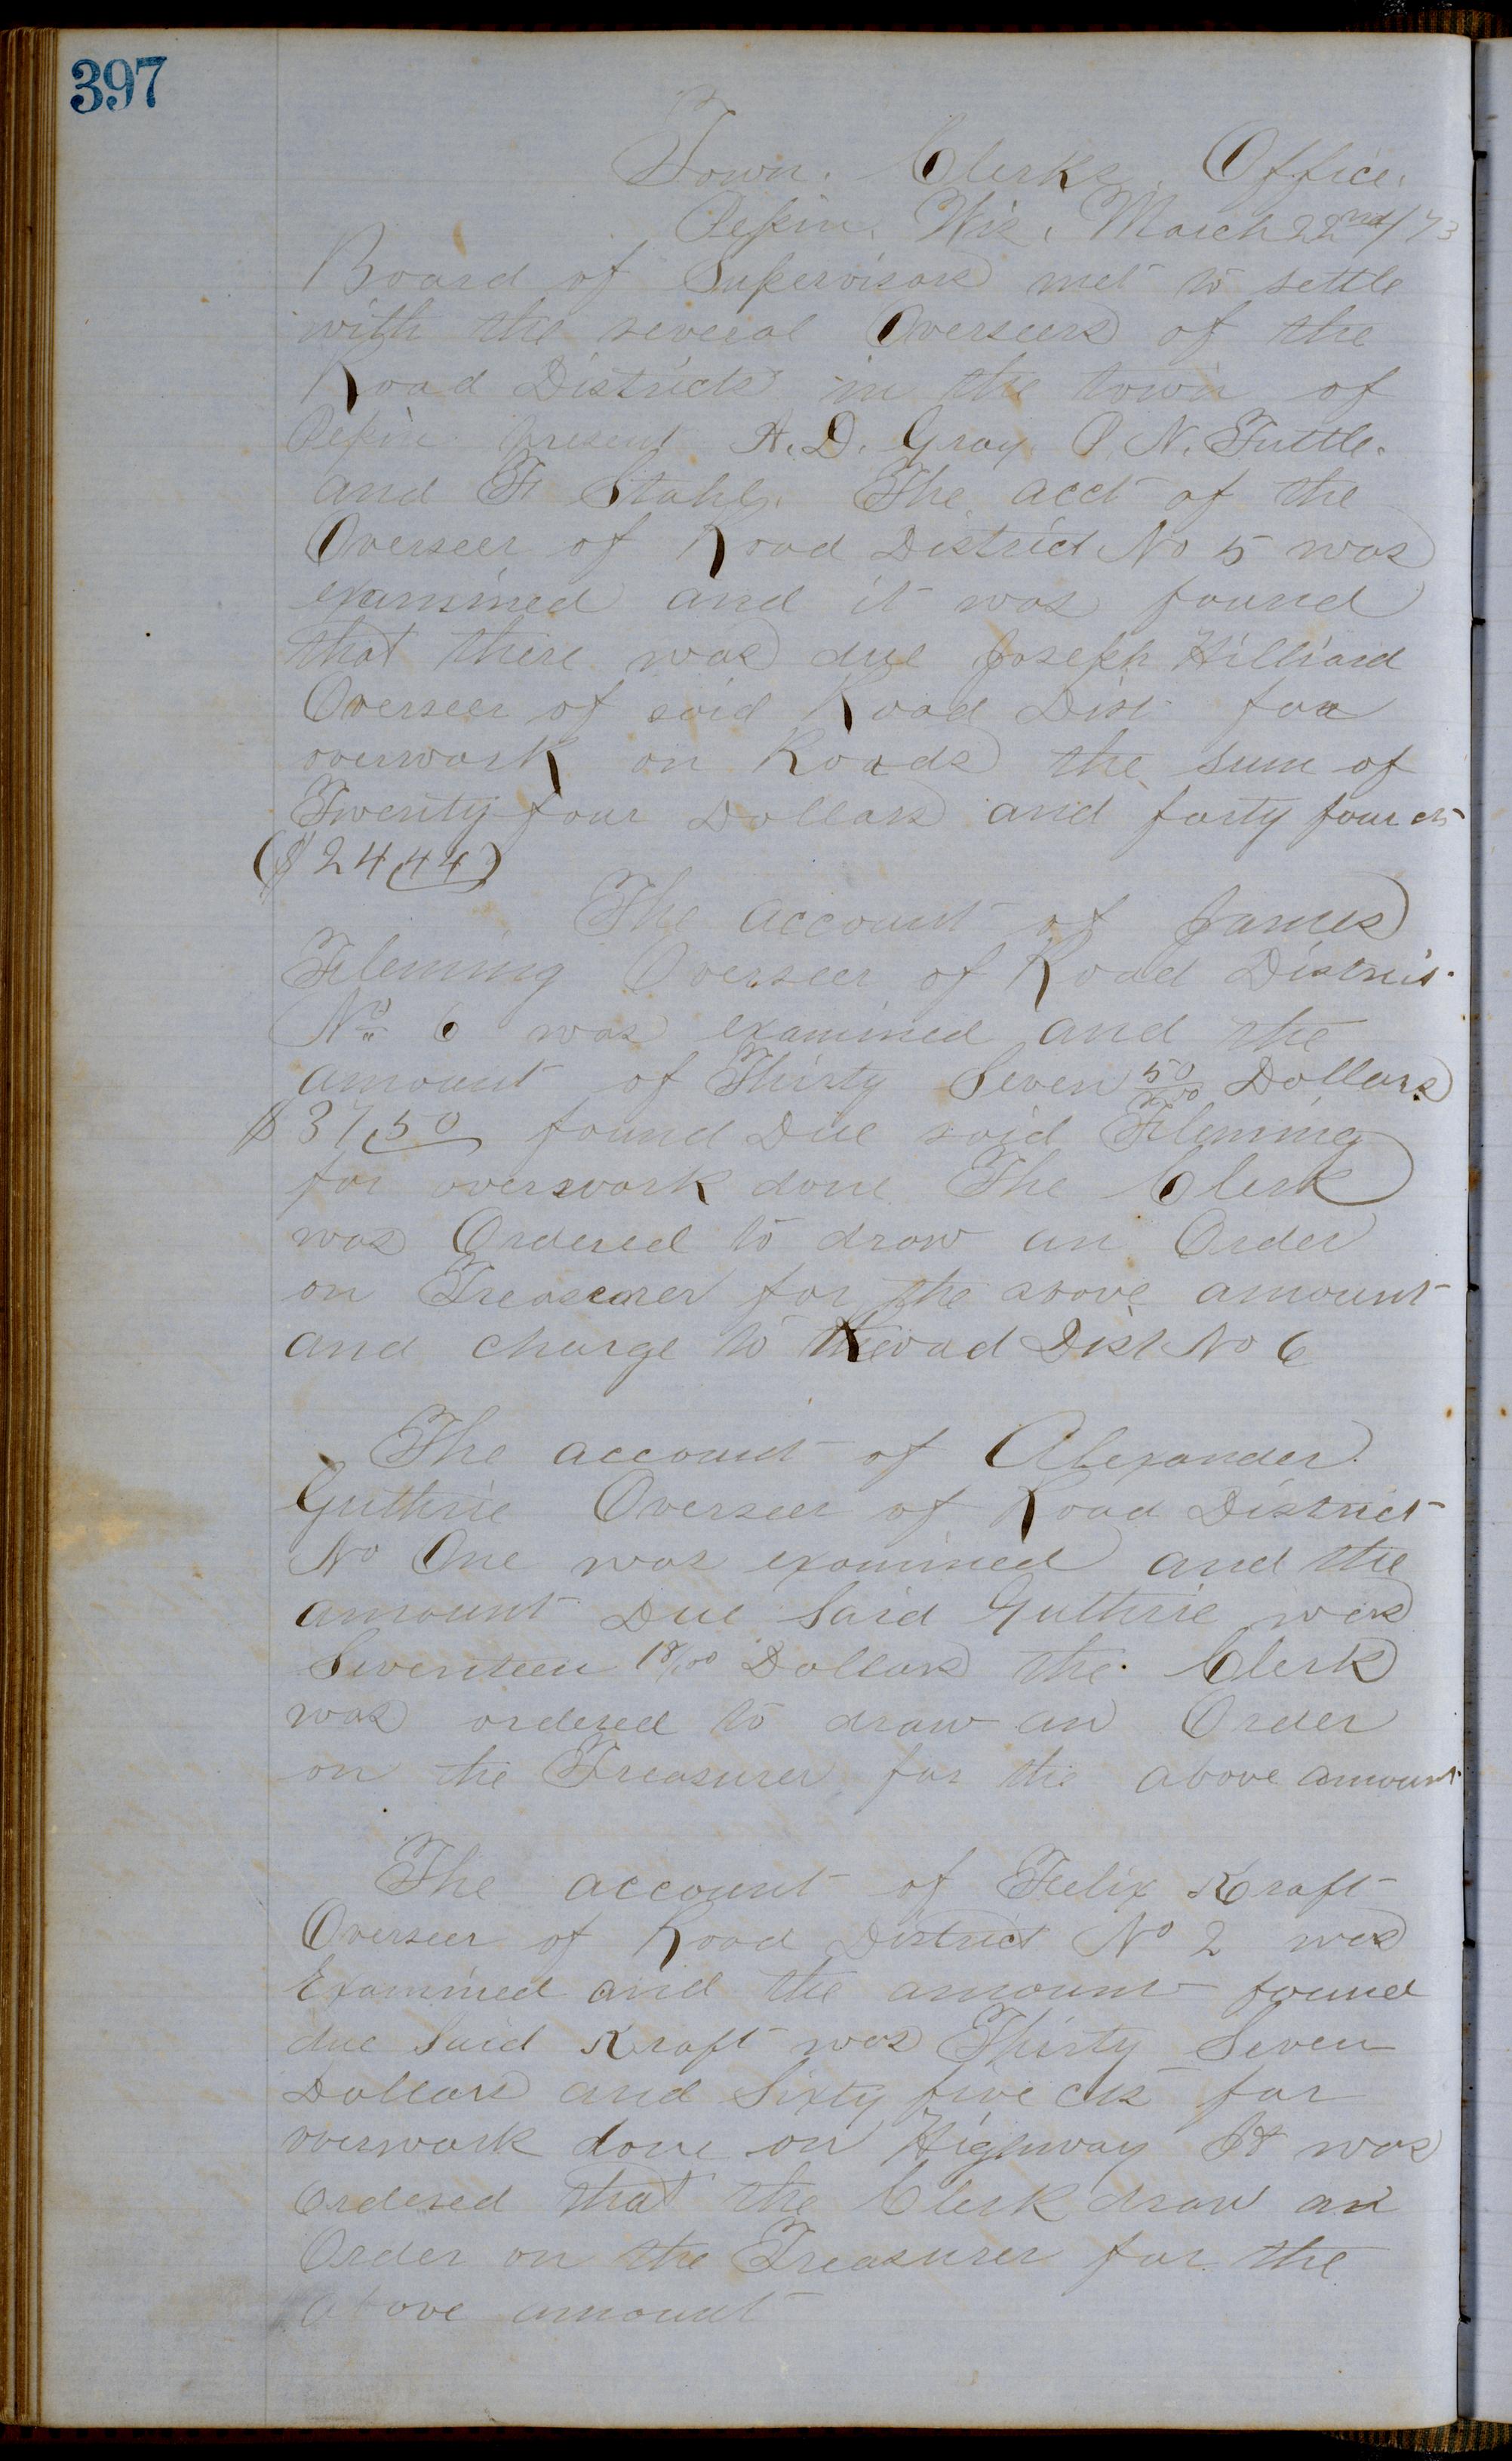 397
Town. Clerks. Office.
Pepin. Wis. March 22nd/73
Board of Supervisors met to settle
with the several Overseers of the
Road Districts in the town of
Pepin present A. D. Gray. P. N. Tuttle.
and F. Stahl. The acct of the
Overseer of Road District No 5 was
examined and it was found
that there was due Joseph Hilliard
Overseer of said Road Dist for
overwork on Roads the sum of
Twenty four Dollars and forty four cts
($24.44)
The account of James
Fleming Overseer of Road District
No 6 was examined and the
amount of Thirty Seven 50/100 Dollars
$37.50 found Due said Fleming
for overwork done The Clerk
was Ordered to draw an Order
on Treasurer for the above amount
and charge to Road Dist No 6
The account of Alexander
Guthrie Overseer of Road District
No One was examined and the
amount Due Said Guthrie was
Seventeen 18/100 Dollars the Clerk
was ordered to draw an Order
on the Treasurer for the above amount.
The account of Felix Kraft
Overseer of Road District No 2 was
Examined and the amount found
due Said Kraft was Thirty Seven
Dollars and Sixty five cts for
overwork done on Highway It was
Ordered that the Clerk draw an
Order on the Treasurer for the
above amount